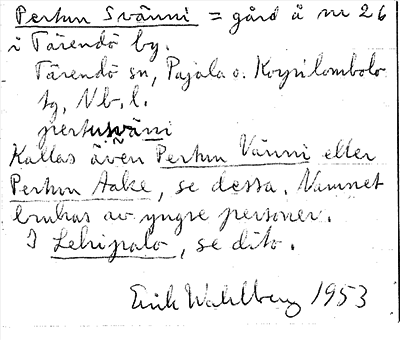 Pertun Svänni = gård å nr 26
i Tärendö by.
Tärendö sn, Pajala o. Korpilombolo
tg, Nb. l.
pertunsväni
Kallas även Pertun Vänni eller
Pertun Aake, se dessa. Namnet
brukas av yngre personer.
I Lehipalo, se dito.
Erik Wahlberg 1953